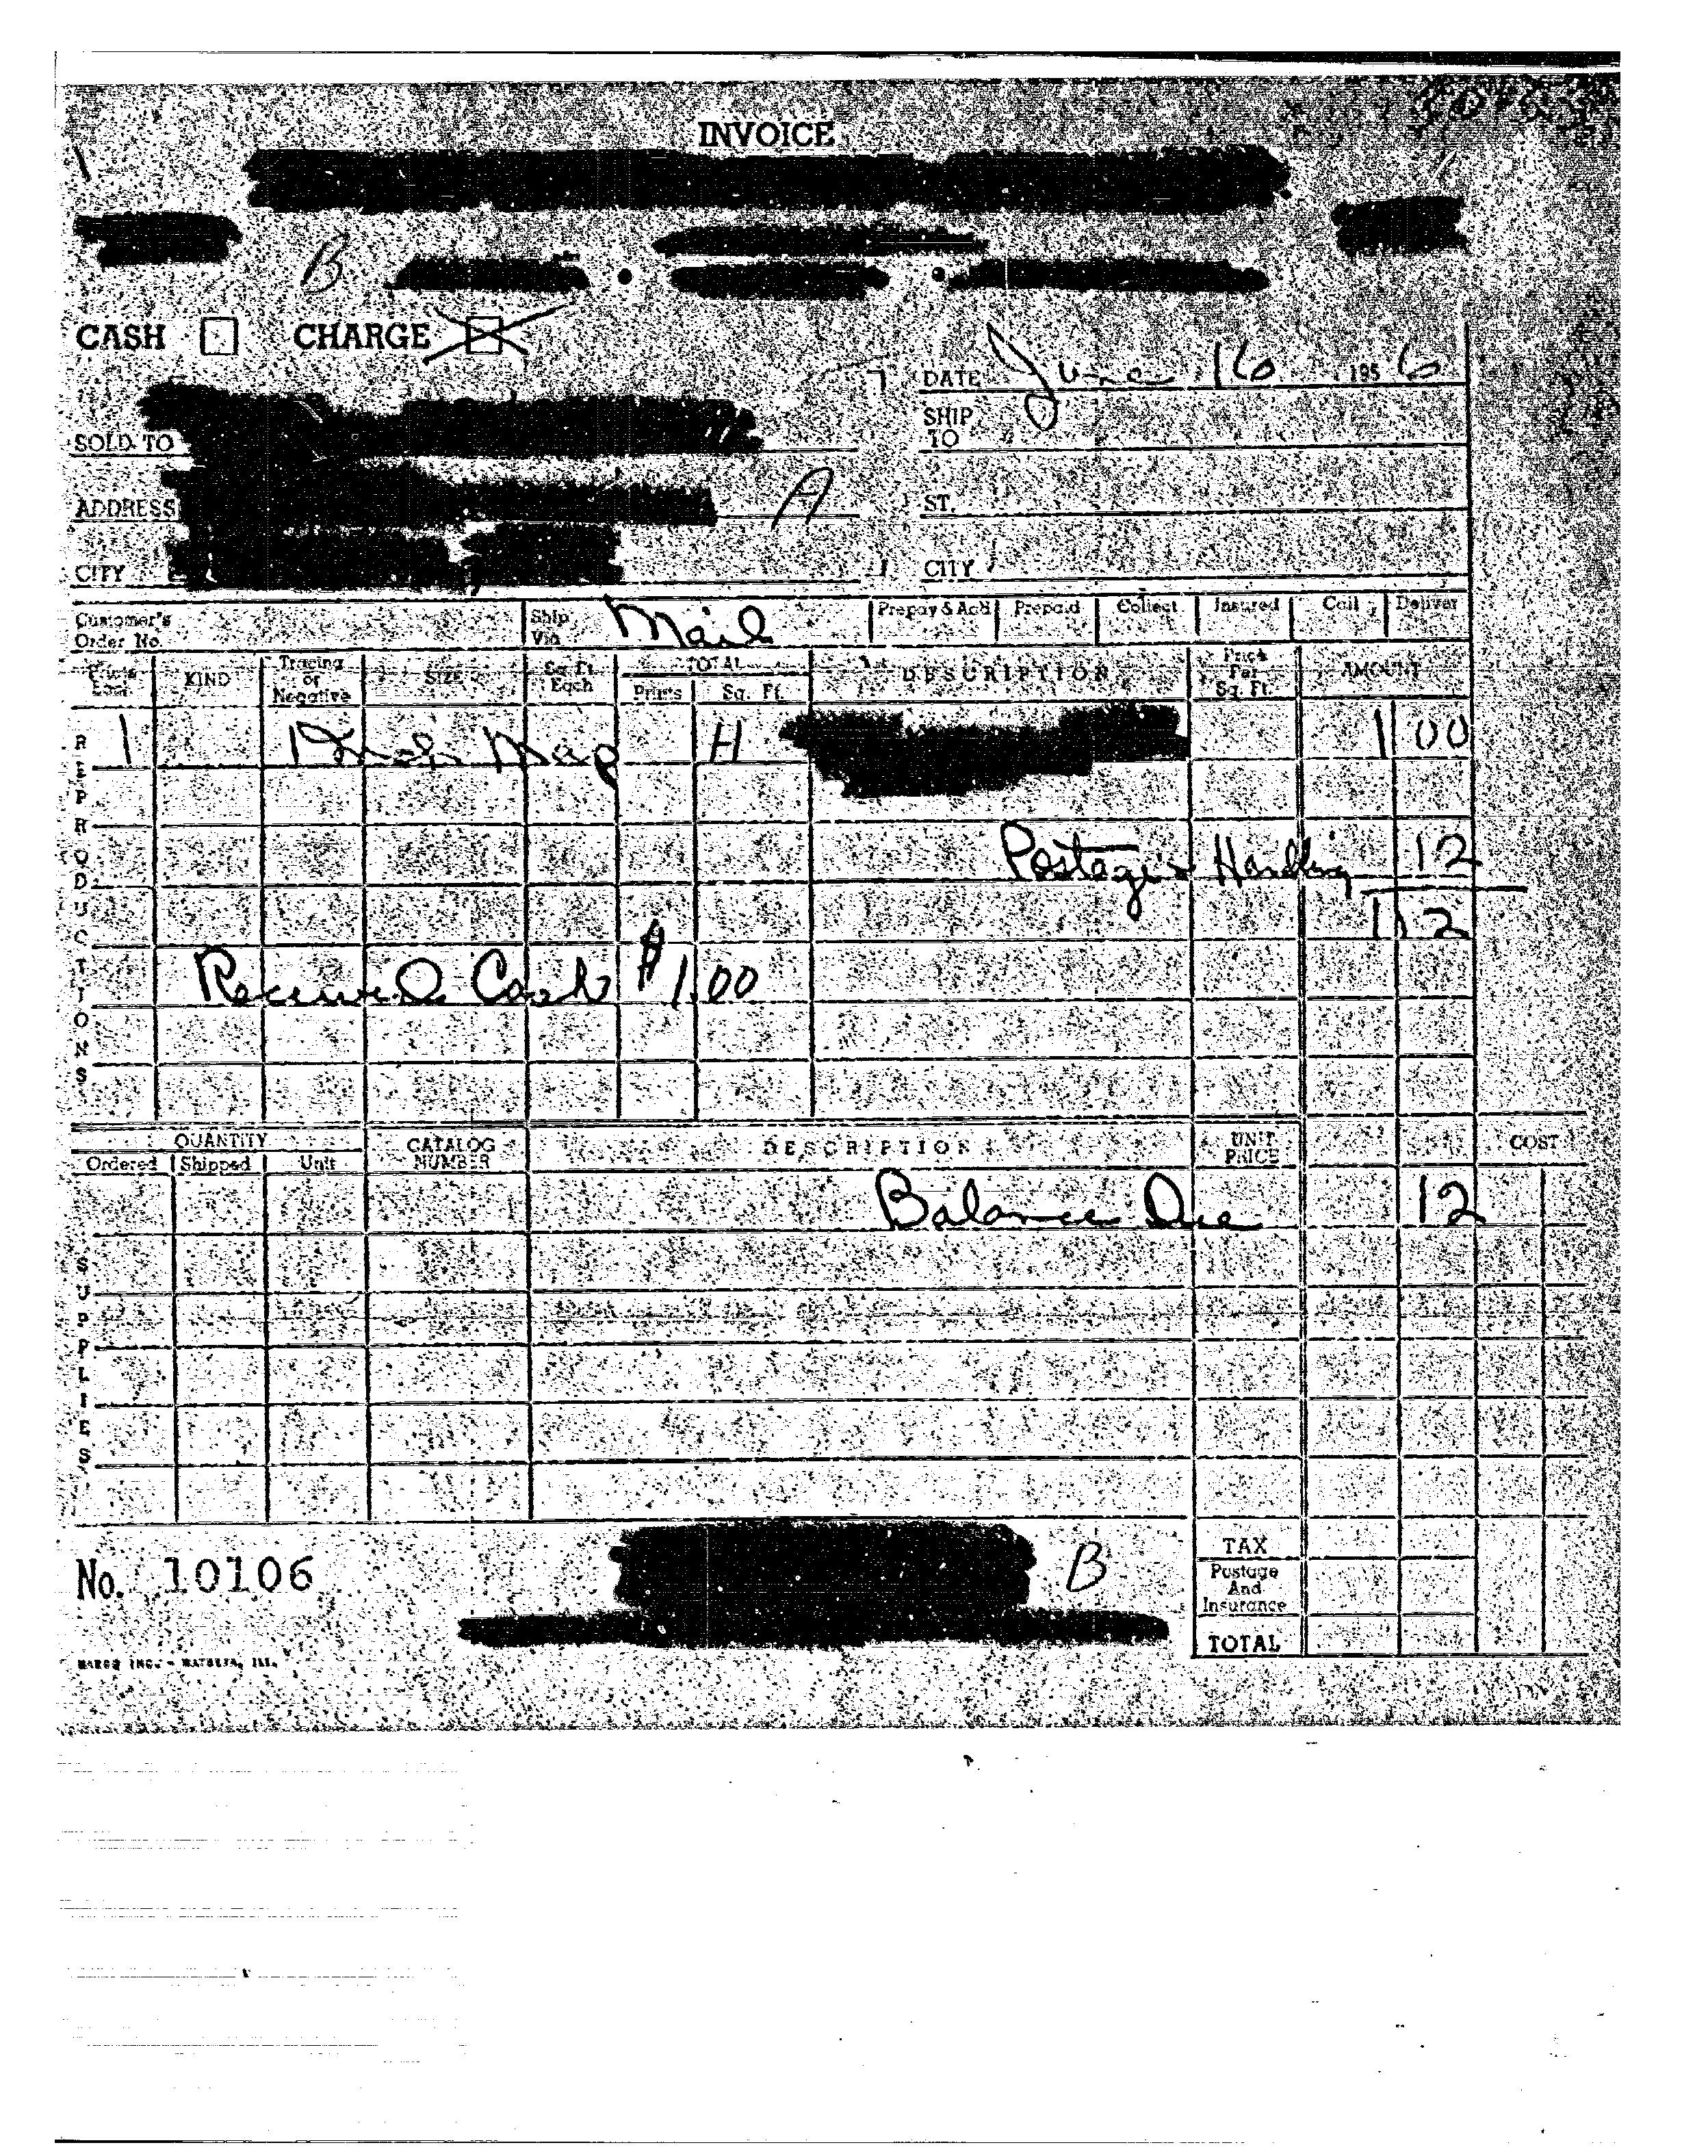 INVOICE
B
CASH CHARGE
DATE June 16 1956
SHIP TO
SOLD TO
ADDRESS A ST.
CITY CITY
Customer's Order No. Ship Via Mail Prepay & Add Prepaid Collect Insured Call Deliver
Prints Each KIND Tracing or Negative SIZE Sq. Ft. Each TOTAL Prints Sq. Ft. DESCRIPTION Price Per Sq. Ft. AMOUNT
REPRODUCTIONS
1 Map H 1 00
Postage & Handling 12
1 12
Received Cash $1.00
QUANTITY Ordered Shipped Unit CATALOG NUMBER DESCRIPTION UNIT PRICE COST
Balance Due 12
SUPPLIES
No. 10106 B
TAX
Postage And Insurance
TOTAL